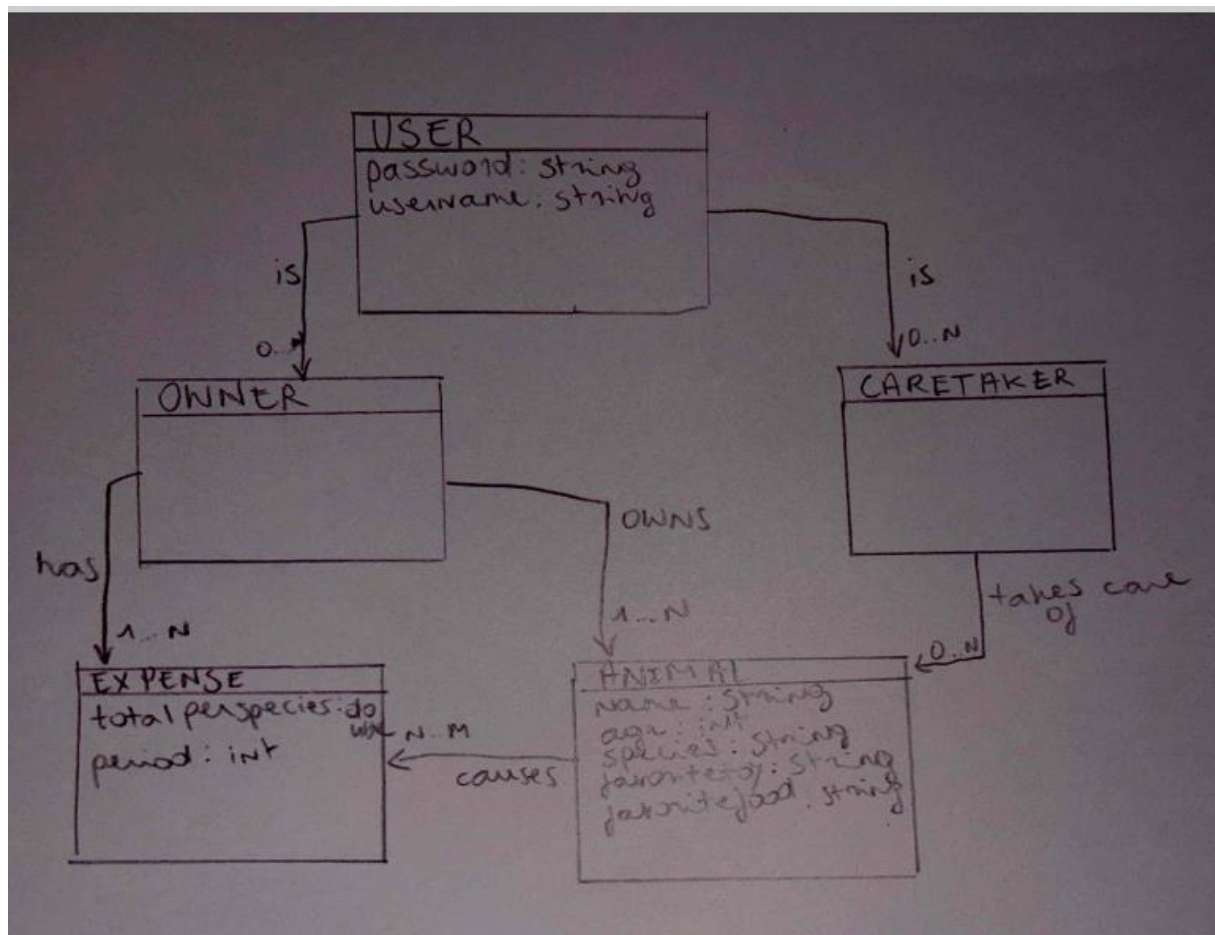 USER
password: string
username: string
is
is
0..N
0..N
OWNER
CARETAKER
has
OWNS
takes care
of
1...N
1...N
0..N
EXPENSE
total perspecies: do
uble
period: int
N..M
causes
ANIMAL
name: string
age: int
species: string
favoritetoy: string
favoritefood: string